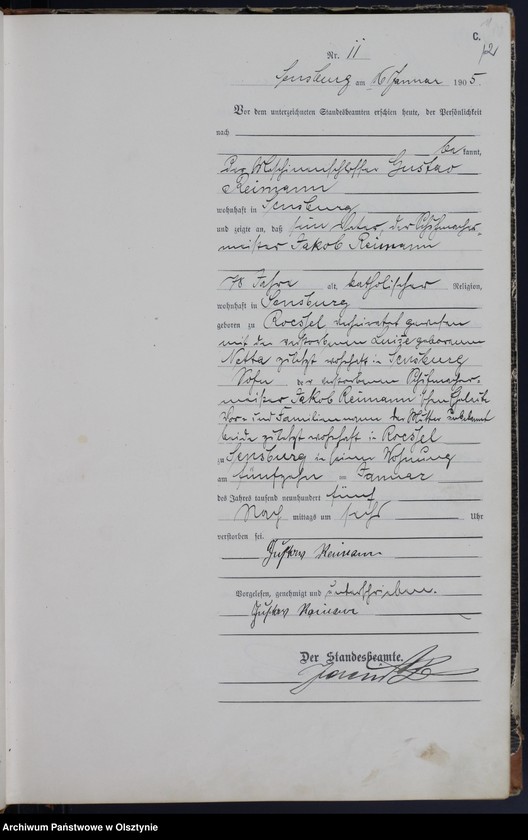 C.
12
Nr. 11
Sensburg am 16 Januar 1905.
Vor dem unterzeichneten Standesbeamten erschien heute, der Persönlichkeit
nach
bekannt,
Der Maschinenschlosser Gustav
Reimann
wohnhaft in Sensburg
und zeigte an, daß sein Vater, der Schuhmacher-
meister Jakob Reimann
78 Jahre alt, katholischer Religion,
wohnhaft in Sensburg
geboren zu Roessel verheiratet gewesen
mit der verstorbenen Luize geborenen
Netta zuletzt wohnhaft in Sensburg
Sohn der verstorbenen Schuhmacher-
meister Jakob Reimann Eheleute
Vor- und Familienname der Mutter unbekannt
beide zuletzt wohnhaft in Roessel
zu Sensburg in seiner Wohnung
am fünfzehn en Januar
des Jahres tausend neunhundert fünf
Nach mittags um sechs Uhr
verstorben sei.
Gustav Reimann
Vorgelesen, genehmigt und unterschrieben.
Gustav Reimann
Der Standesbeamte.
Archiwum Państwowe w Olsztynie